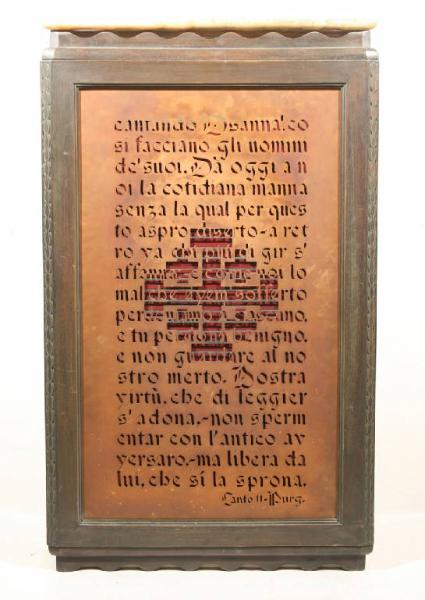 cantando Osanna! co
si facciano gli uomini
de' suoi. Dà oggi a n
oi la cotidiana manna
senza la qual per ques
to aspro diserto - a ret
ro va chi più di gir s'
affanna. e come noi lo
mal che avem sofferto
perdoniamo a ciascuno,
e tu perdona benigno,
e non guardare al no
stro merto. Nostra
virtù, che di leggier
s'adona, - non sperm
entar con l'antico av
versaro, - ma libera da
lui, che sí la sprona.
Canto 11 - Purg.